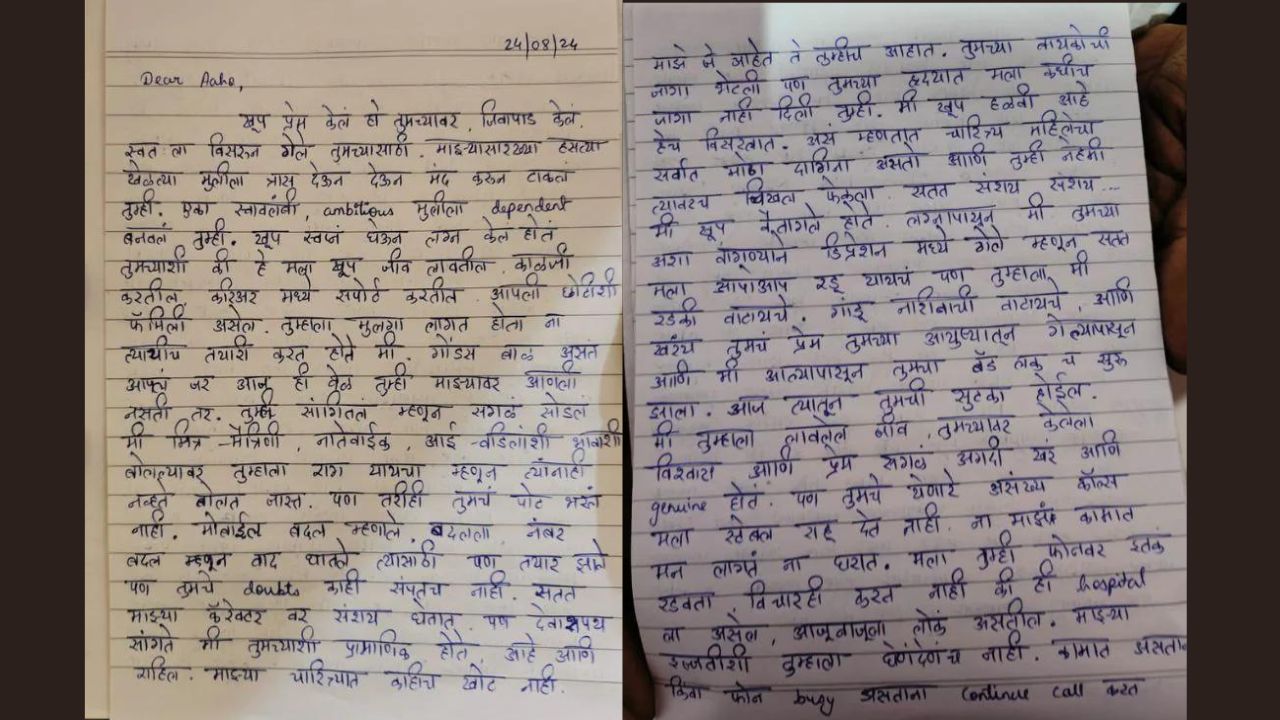 24/08/24
Dear Aaho,
खूप प्रेम केलं हो तुमच्यावर, जिवापाड केलं.
स्वतःला विसरून गेले तुमच्यासाठी. माझ्यासारख्या हसत्या
खेळत्या मुलीला त्रास देऊन देऊन मंद करून टाकलं
तुम्ही. एका स्वावलंबी, ambitious मुलीला dependent
बनवलं तुम्ही. खूप स्वप्नं घेऊन लग्न केलं होतं
तुमच्याशी की हे मला खूप जीव लावतील. काळजी
करतील, करिअर मध्ये सपोर्ट करतील. आपली छोटीशी
फॅमिली असेल. तुम्हाला मुलगा लागत होता ना
त्याचीच तयारी करत होते मी. गोंडस बाळ असतं
आपलं जर आज ही वेळ तुम्ही माझ्यावर आणली
नसती तर. तुम्ही सांगितलं म्हणून सगळं सोडलं
मी मित्र-मैत्रिणी, नातेवाईक, आई-वडिलांशी भावाशी
बोलल्यावर तुम्हाला राग यायचा म्हणून त्यांनाही
नव्हते बोलत जास्त. पण तरीही तुमचं पोट भरलं
नाही. मोबाईल बदल म्हणाले, बदलला नंबर
बदल म्हणून वाद घातले त्यासाठी पण तयार झाले
पण तुमचे doubts काही संपतच नाही. सतत
माझ्या कॅरेक्टर वर संशय घेतात. पण देवाशपथ
सांगते मी तुमच्याशी प्रामाणिक होते आहे आणि
राहिल. माझ्या चारित्र्यात काहीच खोट नाही.
माझे जे आहेत ते तुम्हीच आहात. तुमच्या बायकोची
जागा भेटली पण तुमच्या हृदयात मला कधीच
जागा नाही दिली तुम्ही. मी खूप हळवी आहे
हेच विसरलात. असं म्हणतात चारित्र्य महिलेचा
सर्वात मोठा दागिना असतो आणि तुम्ही नेहमी
त्यावरच चिखल फेकला. सतत संशय संशय...
मी खूप कंटाळले होते. लग्नापासून मी तुमच्या
अशा वागण्याने डिप्रेशन मध्ये गेले म्हणून सतत
मला आपोआप रडू यायचं पण तुम्हाला मी
रडकी वाटायचे. गांडू नशिबाची वाटायचे. आणि
खरंच तुमचं प्रेम तुमच्या आयुष्यातून गेल्यापासून
आणि मी आल्यापासून तुमचा बॅड लक च सुरू
झाला. आज त्यातून तुमची सुटका होईल.
मी तुम्हाला लावलेला जीव, तुमच्यावर केलेला
विश्वास आणि प्रेम सगळं अगदी खरं आणि
genuine होतं. पण तुमचे येणारे असंख्य कॉल्स
मला स्टेबल राहू देत नाही. ना माझं कामात
मन लागतं ना घरात. मला तुम्ही फोनवर इतकं
रडवता, विचारही करत नाही की ही hospital
ला असेल, आजूबाजूला लोकं असतील. माझ्या
इज्जतीशी तुम्हाला घेणंदेणंच नाही. कामात असताना
किंवा फोन busy असताना continue call करत